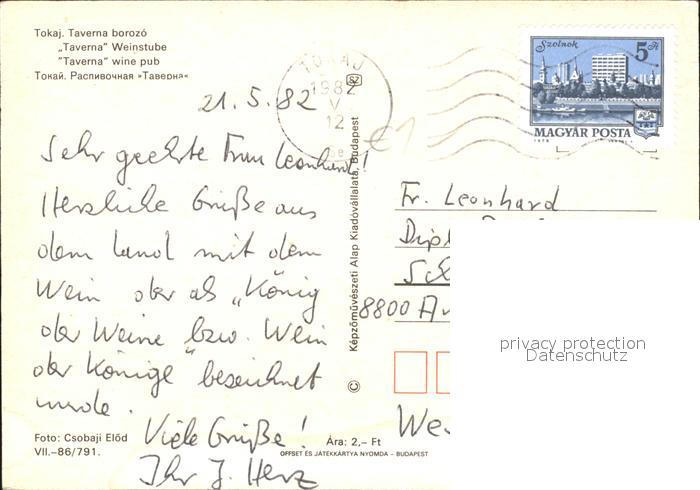 Tokaj. Taverna borozó
„Taverna” Weinstube
”Taverna” wine pub
Токай. Распивочная »Таверна«
21.5.82
Sehr geehrte Frau Leonhard!
Herzliche Grüße aus
dem Land mit dem
Wein der als „König
der Weine bzw. Wein
der Könige" bezeichnet
wurde.
Viele Grüße!
Ihr J. Herz
Foto: Csobaji Előd
VII.–86/791.
Ára: 2,– Ft
OFFSET ÉS JÁTÉKKÁRTYA NYOMDA – BUDAPEST
© Képzőművészeti Alap Kiadóvállalata, Budapest
TOKAJ
1982
V
12
SZ
€1
Szolnok
5 Ft
MAGYAR POSTA
Fr. Leonhard
Dipl
8800 An
We
privacy protection
Datenschutz